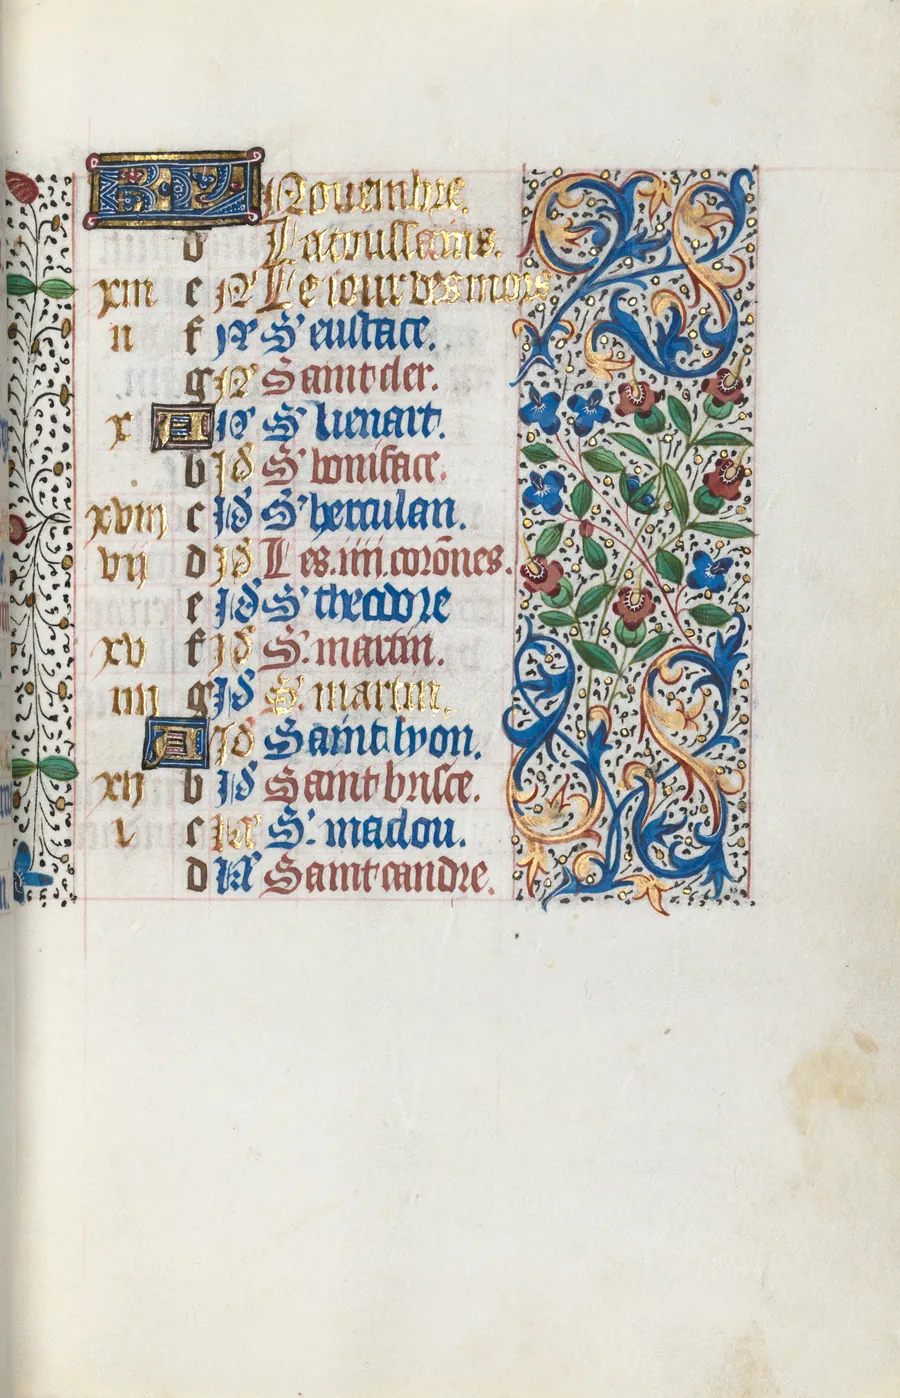 KL Nouembre.
d La toussains.
xiii e N Le iour des mors
ii f N S' eustace.
g N Saint cler.
x A N S' lienart.
b Id S' boniface.
xviii c Id S' herculan.
vii d Id Les .iiii. corōnes.
e Id S' theodore
xv f Id S'. martin.
iiii g Id S'. martin.
A Id Saint lyon.
xii b Id Saint brisce.
i c kl' S'. maclou.
d kl' Saint candre.